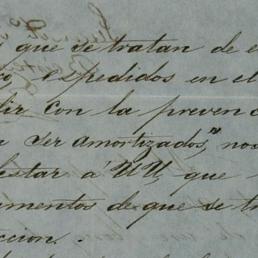 que se tratan de e
espedidos en el
dir con la preven
ser amortizados, nos
estar á UU, que
umentos de que se tr
ccion.